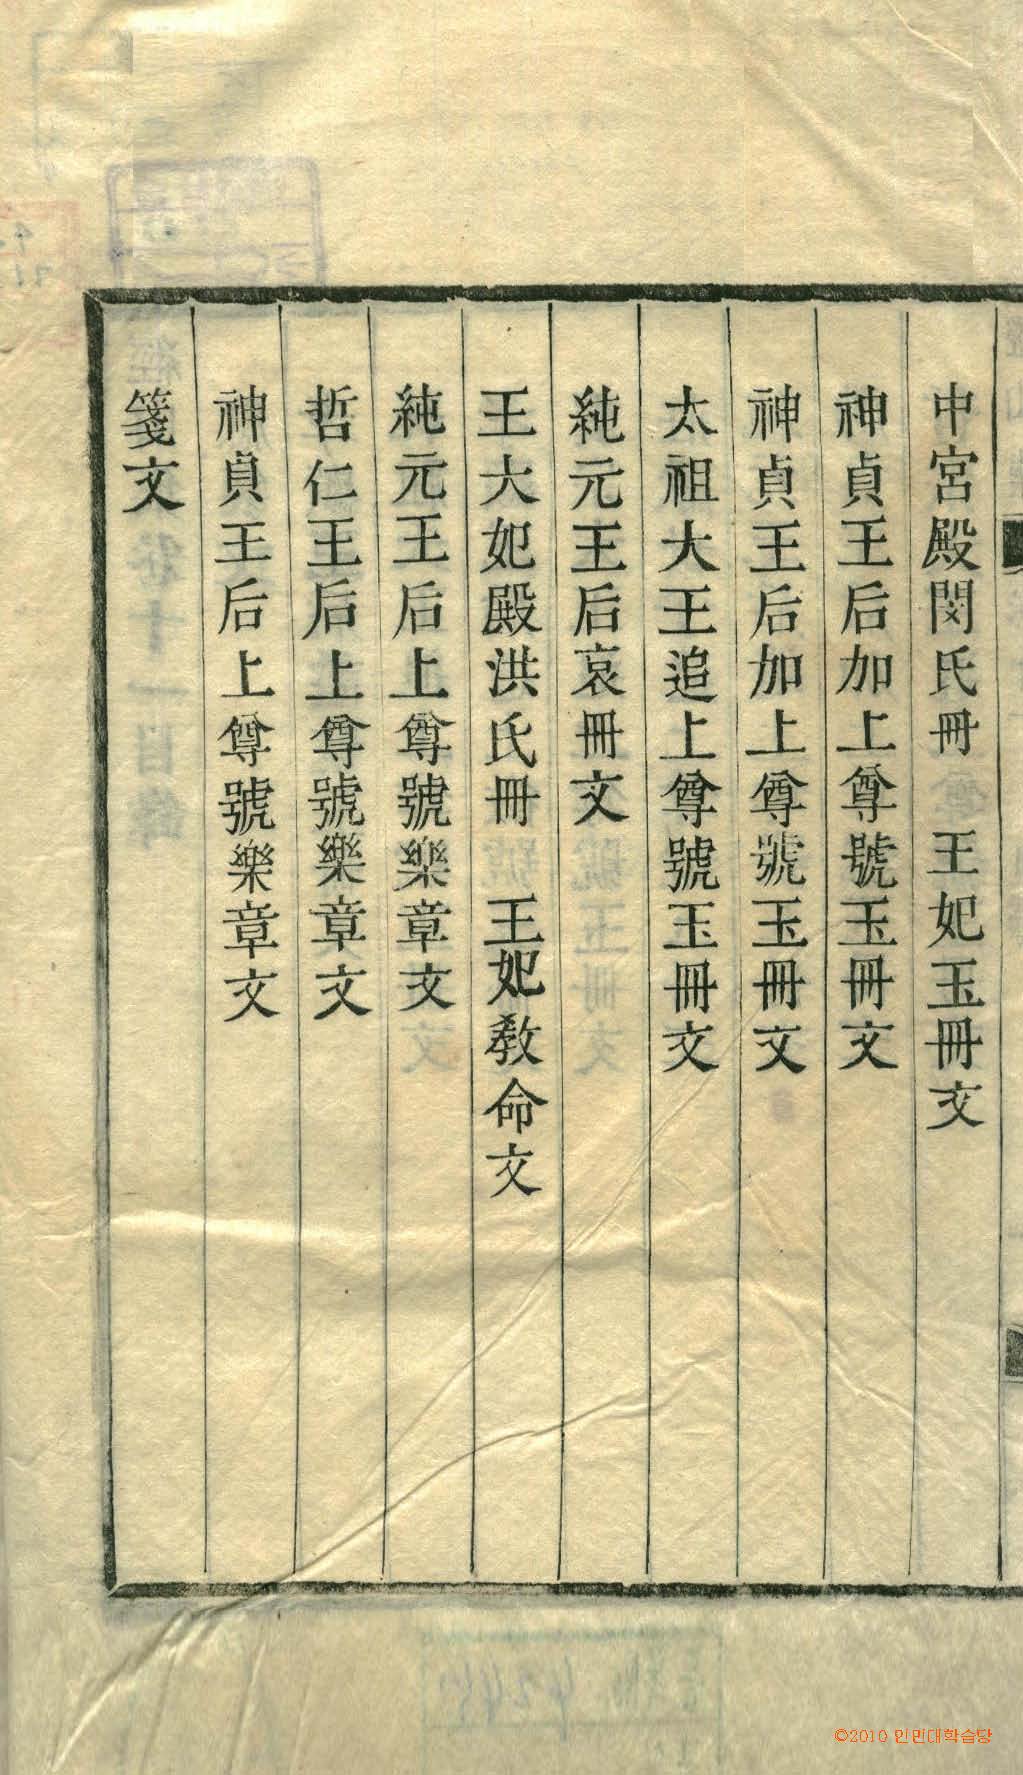 中宮殿閔氏冊　王妃玉冊文
神貞王后加上尊號玉冊文
神貞王后加上尊號玉冊文
太祖大王追上尊號玉冊文
純元王后哀冊文
王大妃殿洪氏冊　王妃教命文
純元王后上尊號樂章文
哲仁王后上尊號樂章文
神貞王后上尊號樂章文
箋文
©2010 인민대학습당